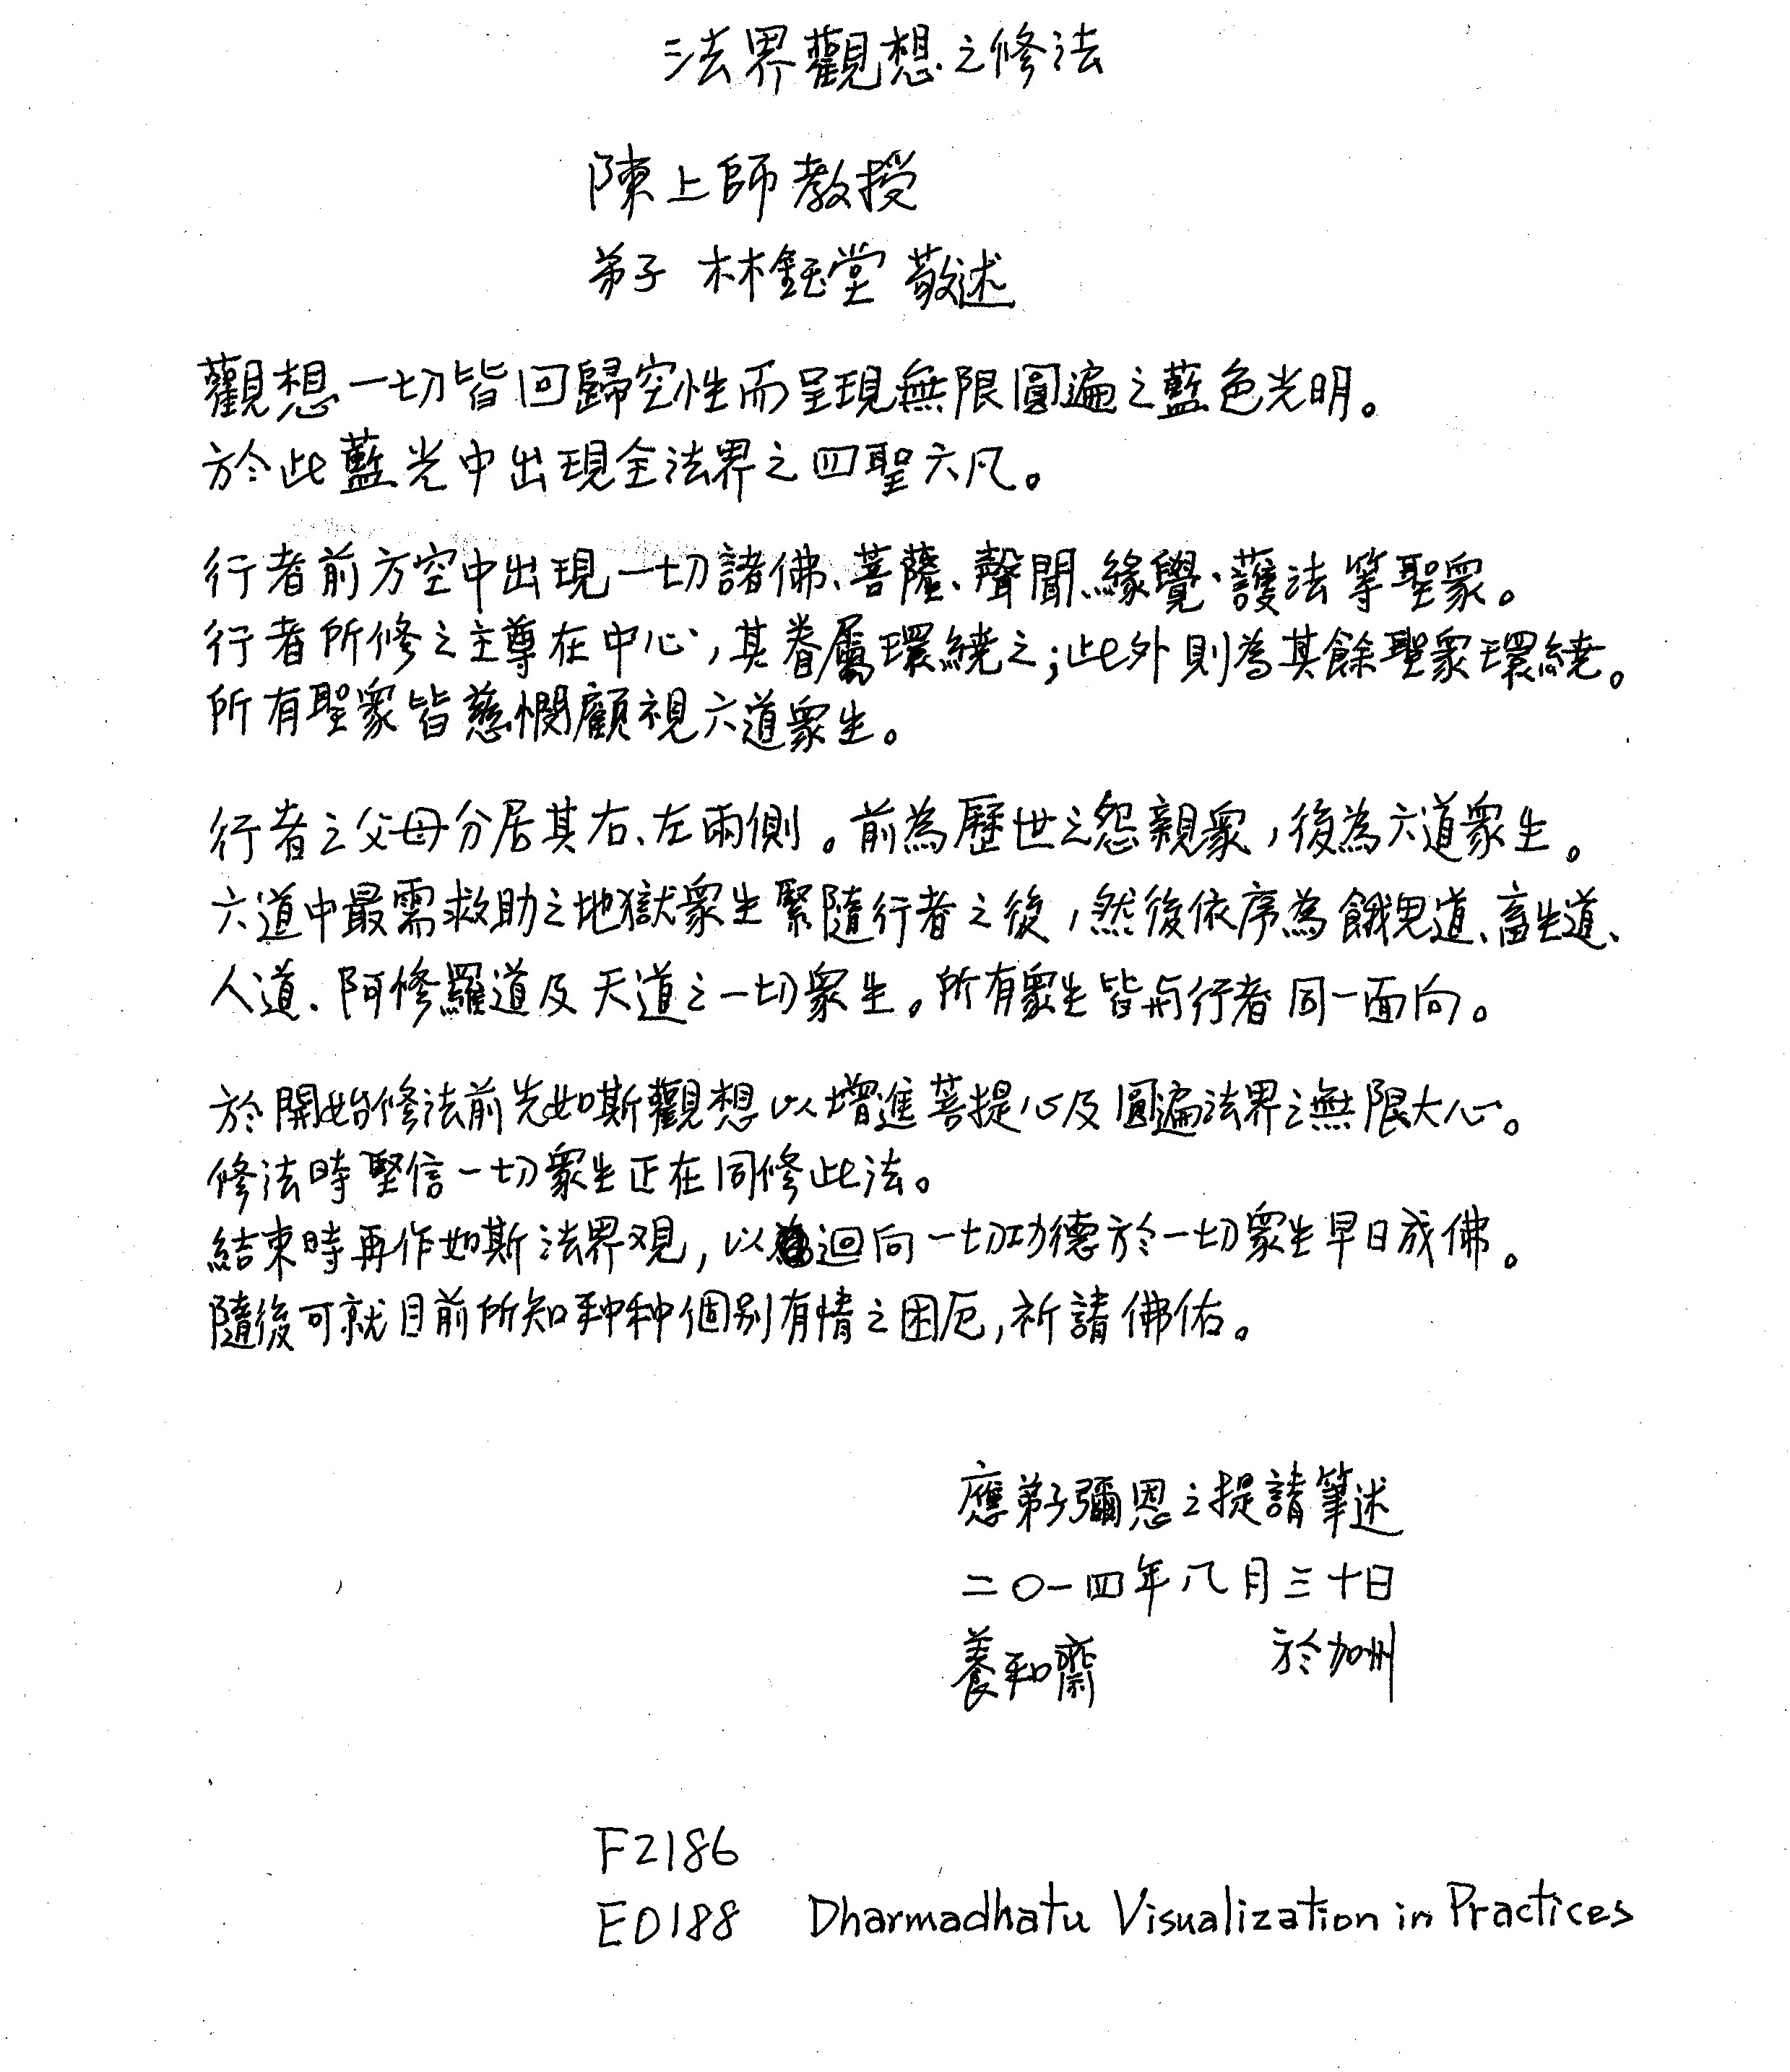 法界觀想之修法
陳上師教授
弟子 林鈺堂 敬述
觀想一切皆回歸空性而呈現無限圓遍之藍色光明。
於此藍光中出現全法界之四聖六凡。
行者前方空中出現一切諸佛、菩薩、聲聞、緣覺、護法等聖眾。
行者所修之主尊在中心，其眷屬環繞之；此外則為其餘聖眾環繞。
所有聖眾皆慈憫顧視六道眾生。
行者之父母分居其右、左兩側。前為歷世之怨親眾，後為六道眾生。
六道中最需救助之地獄眾生緊隨行者之後，然後依序為餓鬼道、畜生道、
人道、阿修羅道及天道之一切眾生。所有眾生皆與行者同一面向。
於開始修法前先如斯觀想以增進菩提心及圓遍法界之無限大心。
修法時堅信一切眾生正在同修此法。
結束時再作如斯法界观，以迴向一切功德於一切眾生早日成佛。
隨後可就目前所知种种個别有情之困厄，祈請佛佑。
應弟子彌恩之提請筆述
二〇一四年八月三十日
養和齋 於加州
F2186
E0188 Dharmadhatu Visualization in Practices